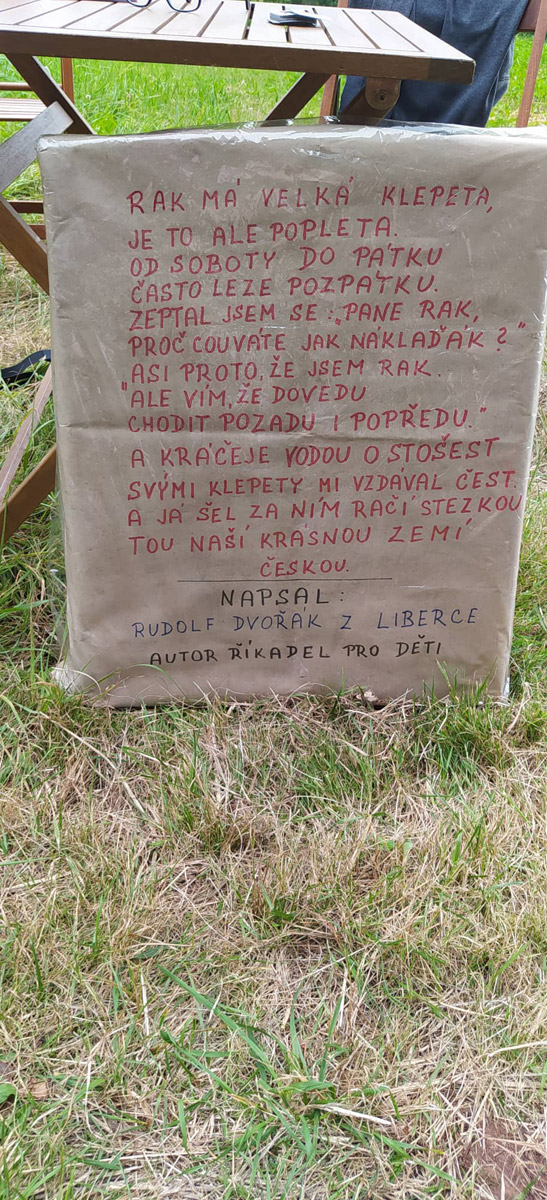 RAK MÁ VELKÁ KLEPETA,
JE TO ALE POPLETA.
OD SOBOTY DO PÁTKU
ČASTO LEZE POZPÁTKU.
ZEPTAL JSEM SE: „PANE RAK,
PROČ COUVÁTE JAK NÁKLAĎÁK?"
ASI PROTO, ŽE JSEM RAK.
"ALE VÍM, ŽE DOVEDU
CHODIT POZADU I POPŘEDU."
A KRÁČEJE VODOU O STOŠEST
SVÝMI KLEPETY MI VZDÁVAL ČEST.
A JÁ ŠEL ZA NÍM RAČÍ STEZKOU
TOU NAŠÍ KRÁSNOU ZEMÍ
ČESKOU.
NAPSAL:
RUDOLF DVOŘÁK Z LIBERCE
AUTOR ŘÍKADEL PRO DĚTI